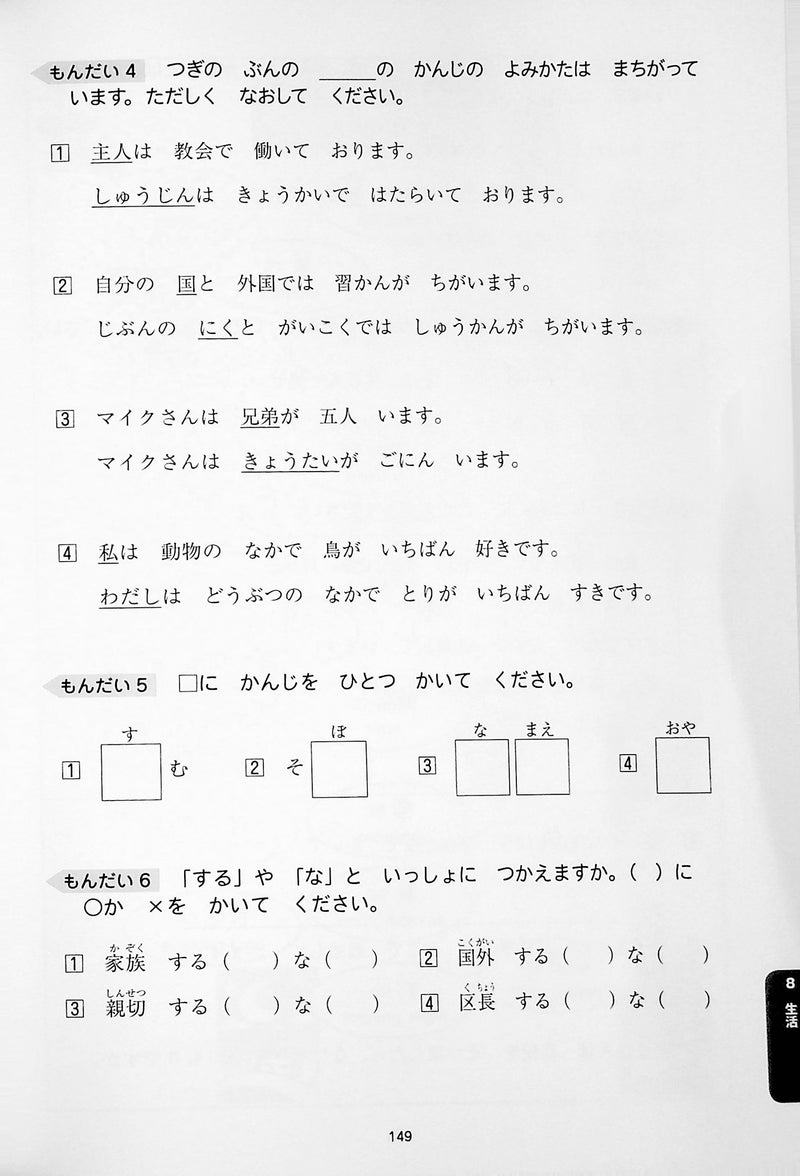 もんだい 4 つぎの ぶんの _____の かんじの よみかたは まちがって
います。ただしく なおして ください。
1 主人は 教会で 働いて おります。
しゅうじんは きょうかいで はたらいて おります。
2 自分の 国と 外国では 習かんが ちがいます。
じぶんの にくと がいこくでは しゅうかんが ちがいます。
3 マイクさんは 兄弟が 五人 います。
マイクさんは きょうたいが ごにん います。
4 私は 動物の なかで 鳥が いちばん 好きです。
わだしは どうぶつの なかで とりが いちばん すきです。
もんだい 5 □に かんじを ひとつ かいて ください。
す ぼ な まえ おや
1 □む 2 そ□ 3 □□ 4 □
もんだい 6 「する」や 「な」と いっしょに つかえますか。( )に
○か ×を かいて ください。
か ぞく こくがい
1 家族 する( )な( ) 2 国外 する( )な( )
しんせつ く ちょう
3 親切 する( )な( ) 4 区長 する( )な( )
8 生活
149